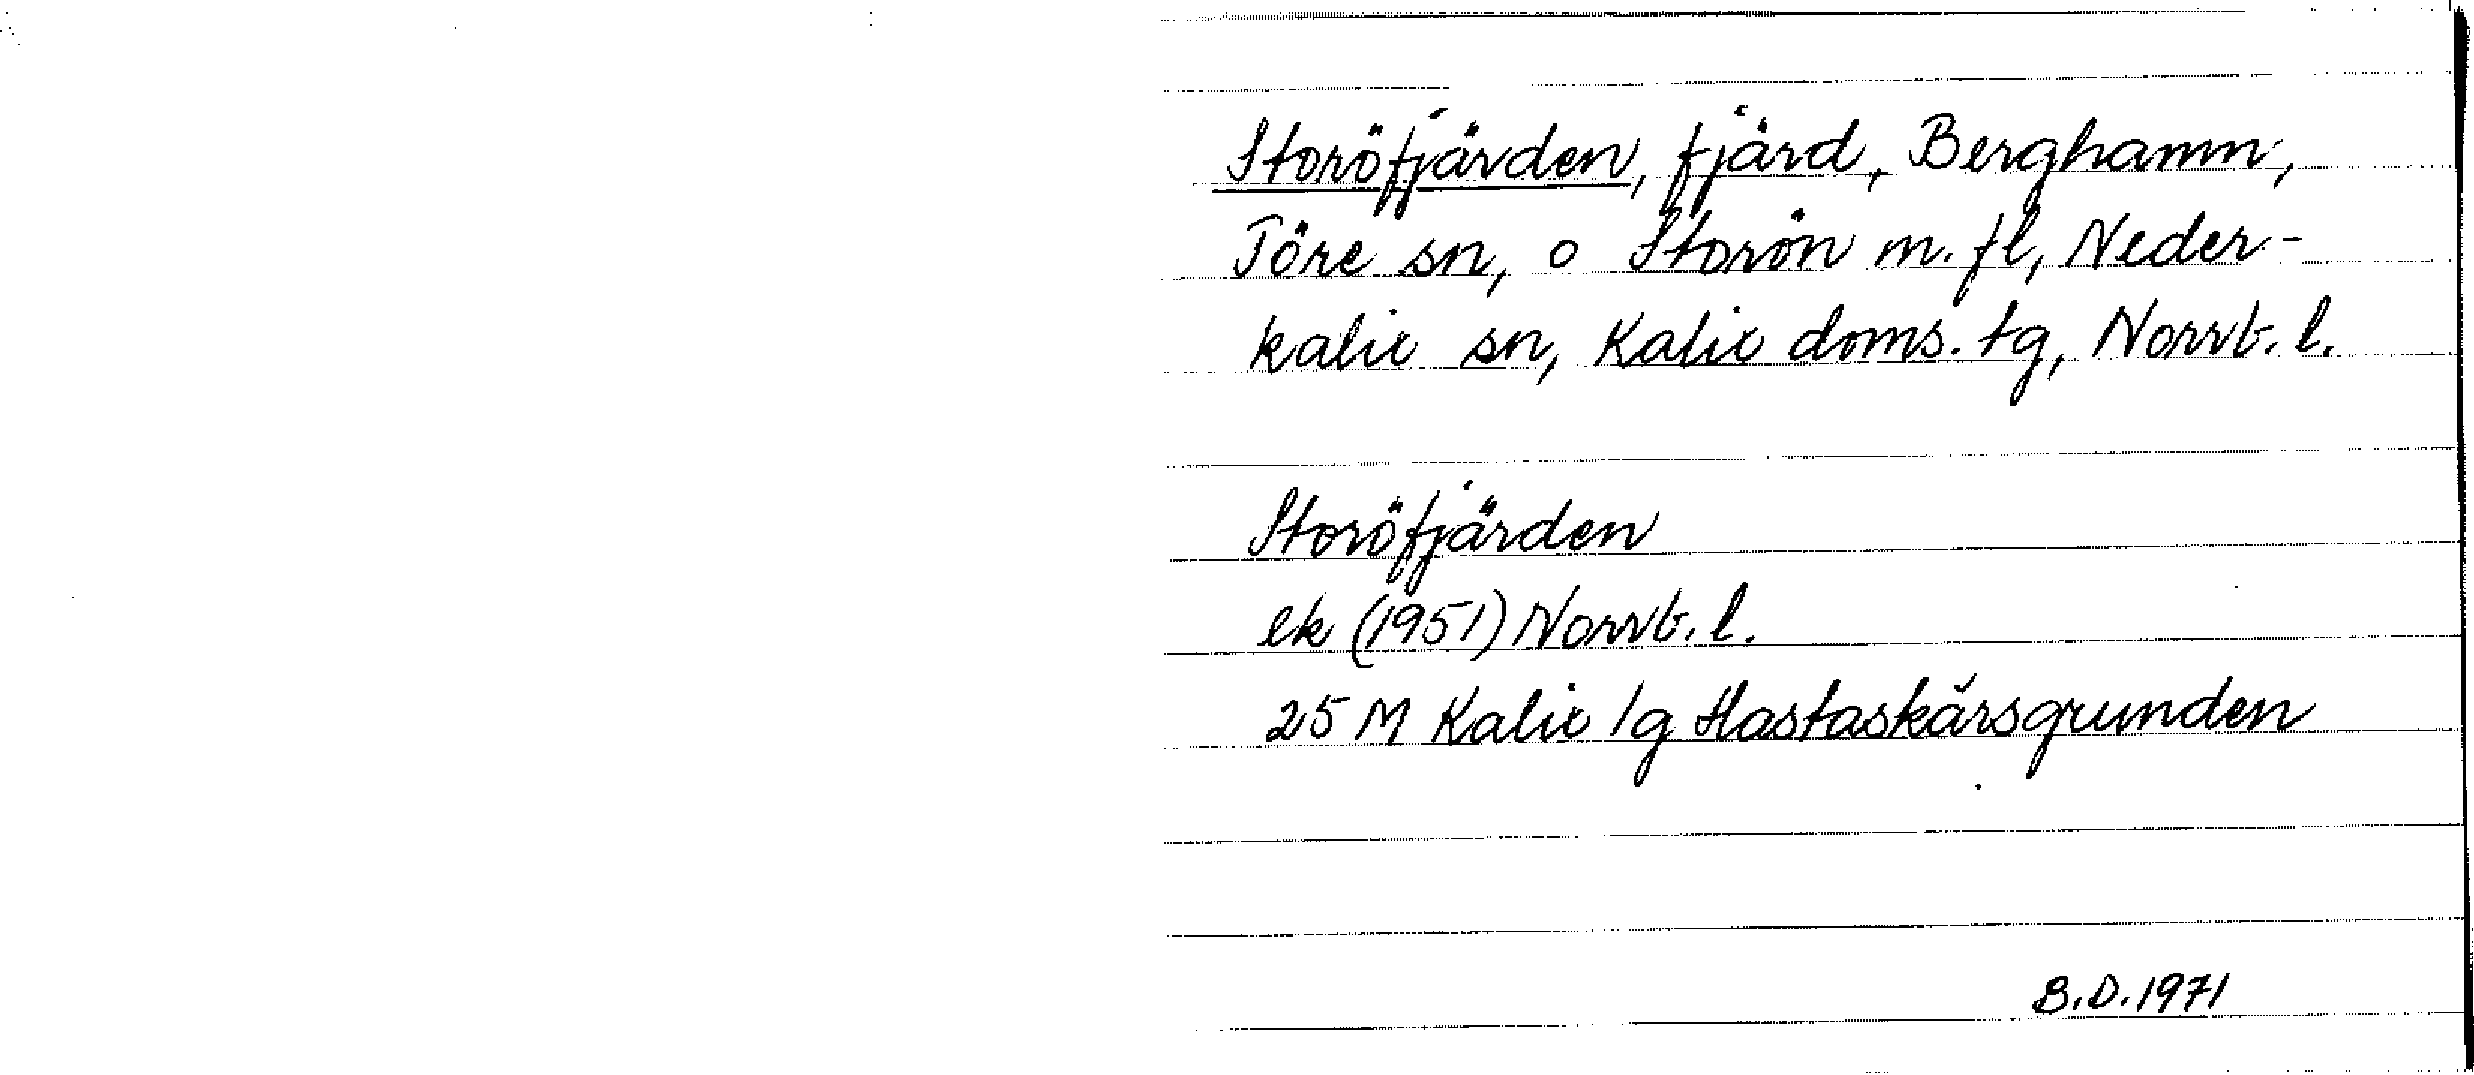 Storöfjärden, fjärd, Berghamn,
Töre sn, o Storön m. fl, Neder-
kalix sn, Kalix doms. tg, Norrb. l.
Storöfjärden
ek (1951) Norrb. l.
25 M Kalix /g Hastaskärsgrunden
B.D. 1971